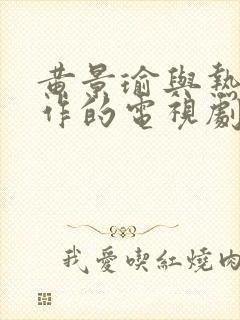 黄景瑜與熱
作的電視劇
我愛喫紅燒肉